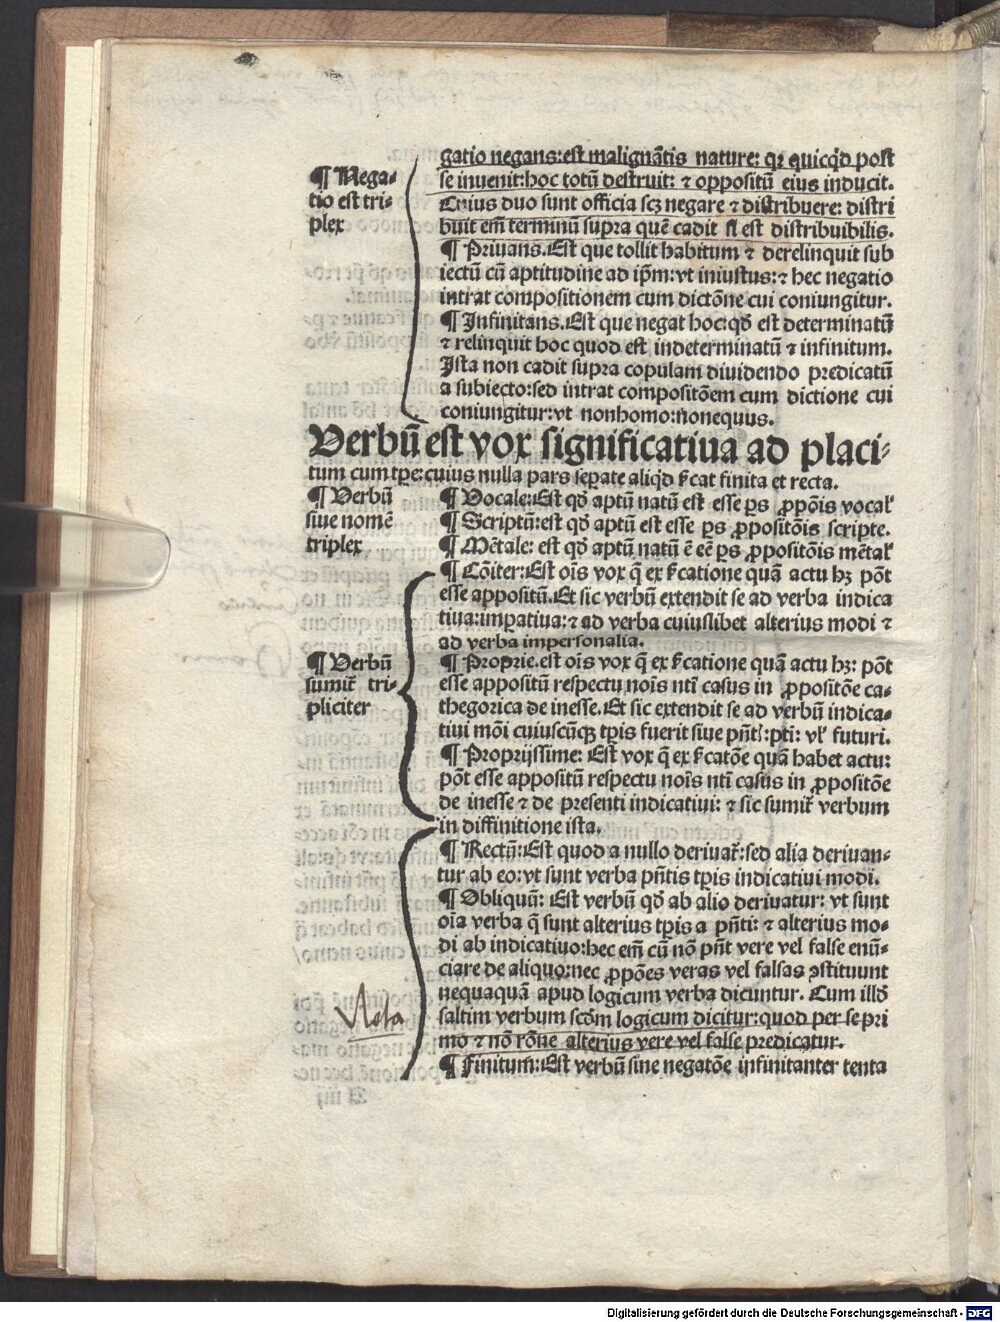 gatio negans:est malignãtis nature: qꝛ quicqͥd post
¶ Nega-
se inuenit:hoc totũ destruit: ⁊ oppositũ eius inducit.
tio est tri-
Cuius duo sunt officia scꝫ negare ⁊ distribuere: distri
plex
buit em̃ terminũ supra quẽ cadit si est distribuibilis.
¶ Priuans.Est que tollit habitum ⁊ derelinquit sub
iectũ cũ aptitudine ad ip̃m:vt iniustus:⁊ hec negatio
intrat compositionem cum dictõne cui coniungitur.
¶ Infinitans.Est que negat hoc:qd̃ est determinatũ
⁊ relinquit hoc quod est indeterminatũ ⁊ infinitum.
Ista non cadit supra copulam diuidendo predicatũ
a subiecto:sed intrat compositõem cum dictione cui
coniungitur:vt nonhomo:ñonequus.
Verbũ est vox significatiua ad placi-
tum cum tꝑe:cuius nulla pars seꝑate aliqͥd s̃cat finita et recta.
¶ Verbũ
siue nomẽ
triplex
¶ Vocale:Est qd̃ aptũ natũ est esse ꝑs ꝓpõis vocal̛
¶ Scriptũ:est qd̃ aptũ est esse ꝑs ꝓpositõis scripte.
¶ Mẽtale: est qd̃ aptũ natũ ẽ eẽ ꝑs ꝓpositõis mẽtal̛
¶ Cõiter:Est oĩs vox q̃ ex s̃catione quã actu hꝫ põt
esse appositũ.Et sic verbũ extendit se ad verba indica
tiua:imꝑatiua:⁊ ad verba cuiuslibet alterius modi ⁊
ad verba impersonalia.
¶ Verbũ
sumit̃ tri-
pliciter
¶ Proprie.est oĩs vox q̃ ex s̃catione quã actu hꝫ: põt
esse appositũ respectu noĩs nt̃i casus in ꝓpositõe ca-
thegorica de inesse.Et sic extendit se ad verbũ indica-
tiui mõi cuiuscũqꝫ tꝑis fuerit siue pñt̃i:pti: vl̛ futuri.
¶ Proprijssime: Est vox q̃ ex s̃catõe quã habet actu:
põt esse appositũ respectu noĩs nt̃i casus in ꝓpositõe
de inesse ⁊ de presenti indicatiui: ⁊ sic sumit̃ verbum
in diffinitione ista.
¶ Rectũ:Est quod a nullo deriuat̃:sed alia deriuan-
tur ab eo:vt sunt verba pñtis tꝑis indicatiui modi.
¶ Obliquũ: Est verbũ qd̃ ab alio deriuatur: vt sunt
oĩa verba q̃ sunt alterius tꝑis a pñti: ⁊ alterius mo-
di ab indicatiuo:hec em̃ cũ nõ pñt vere vel false enũ-
ciare de aliquo:nec ꝓpões veras vel falsas ꝯstituunt
nequaquã apud logicum verba dicuntur. Cum illd̃
saltim verbum scd̃m logicum dicitur:quod per se pri
Nota
mo ⁊ nõ rõne alterius vere vel false predicatur.
¶ Finitum:Est verbũ sine negatõe infinitanter tenta